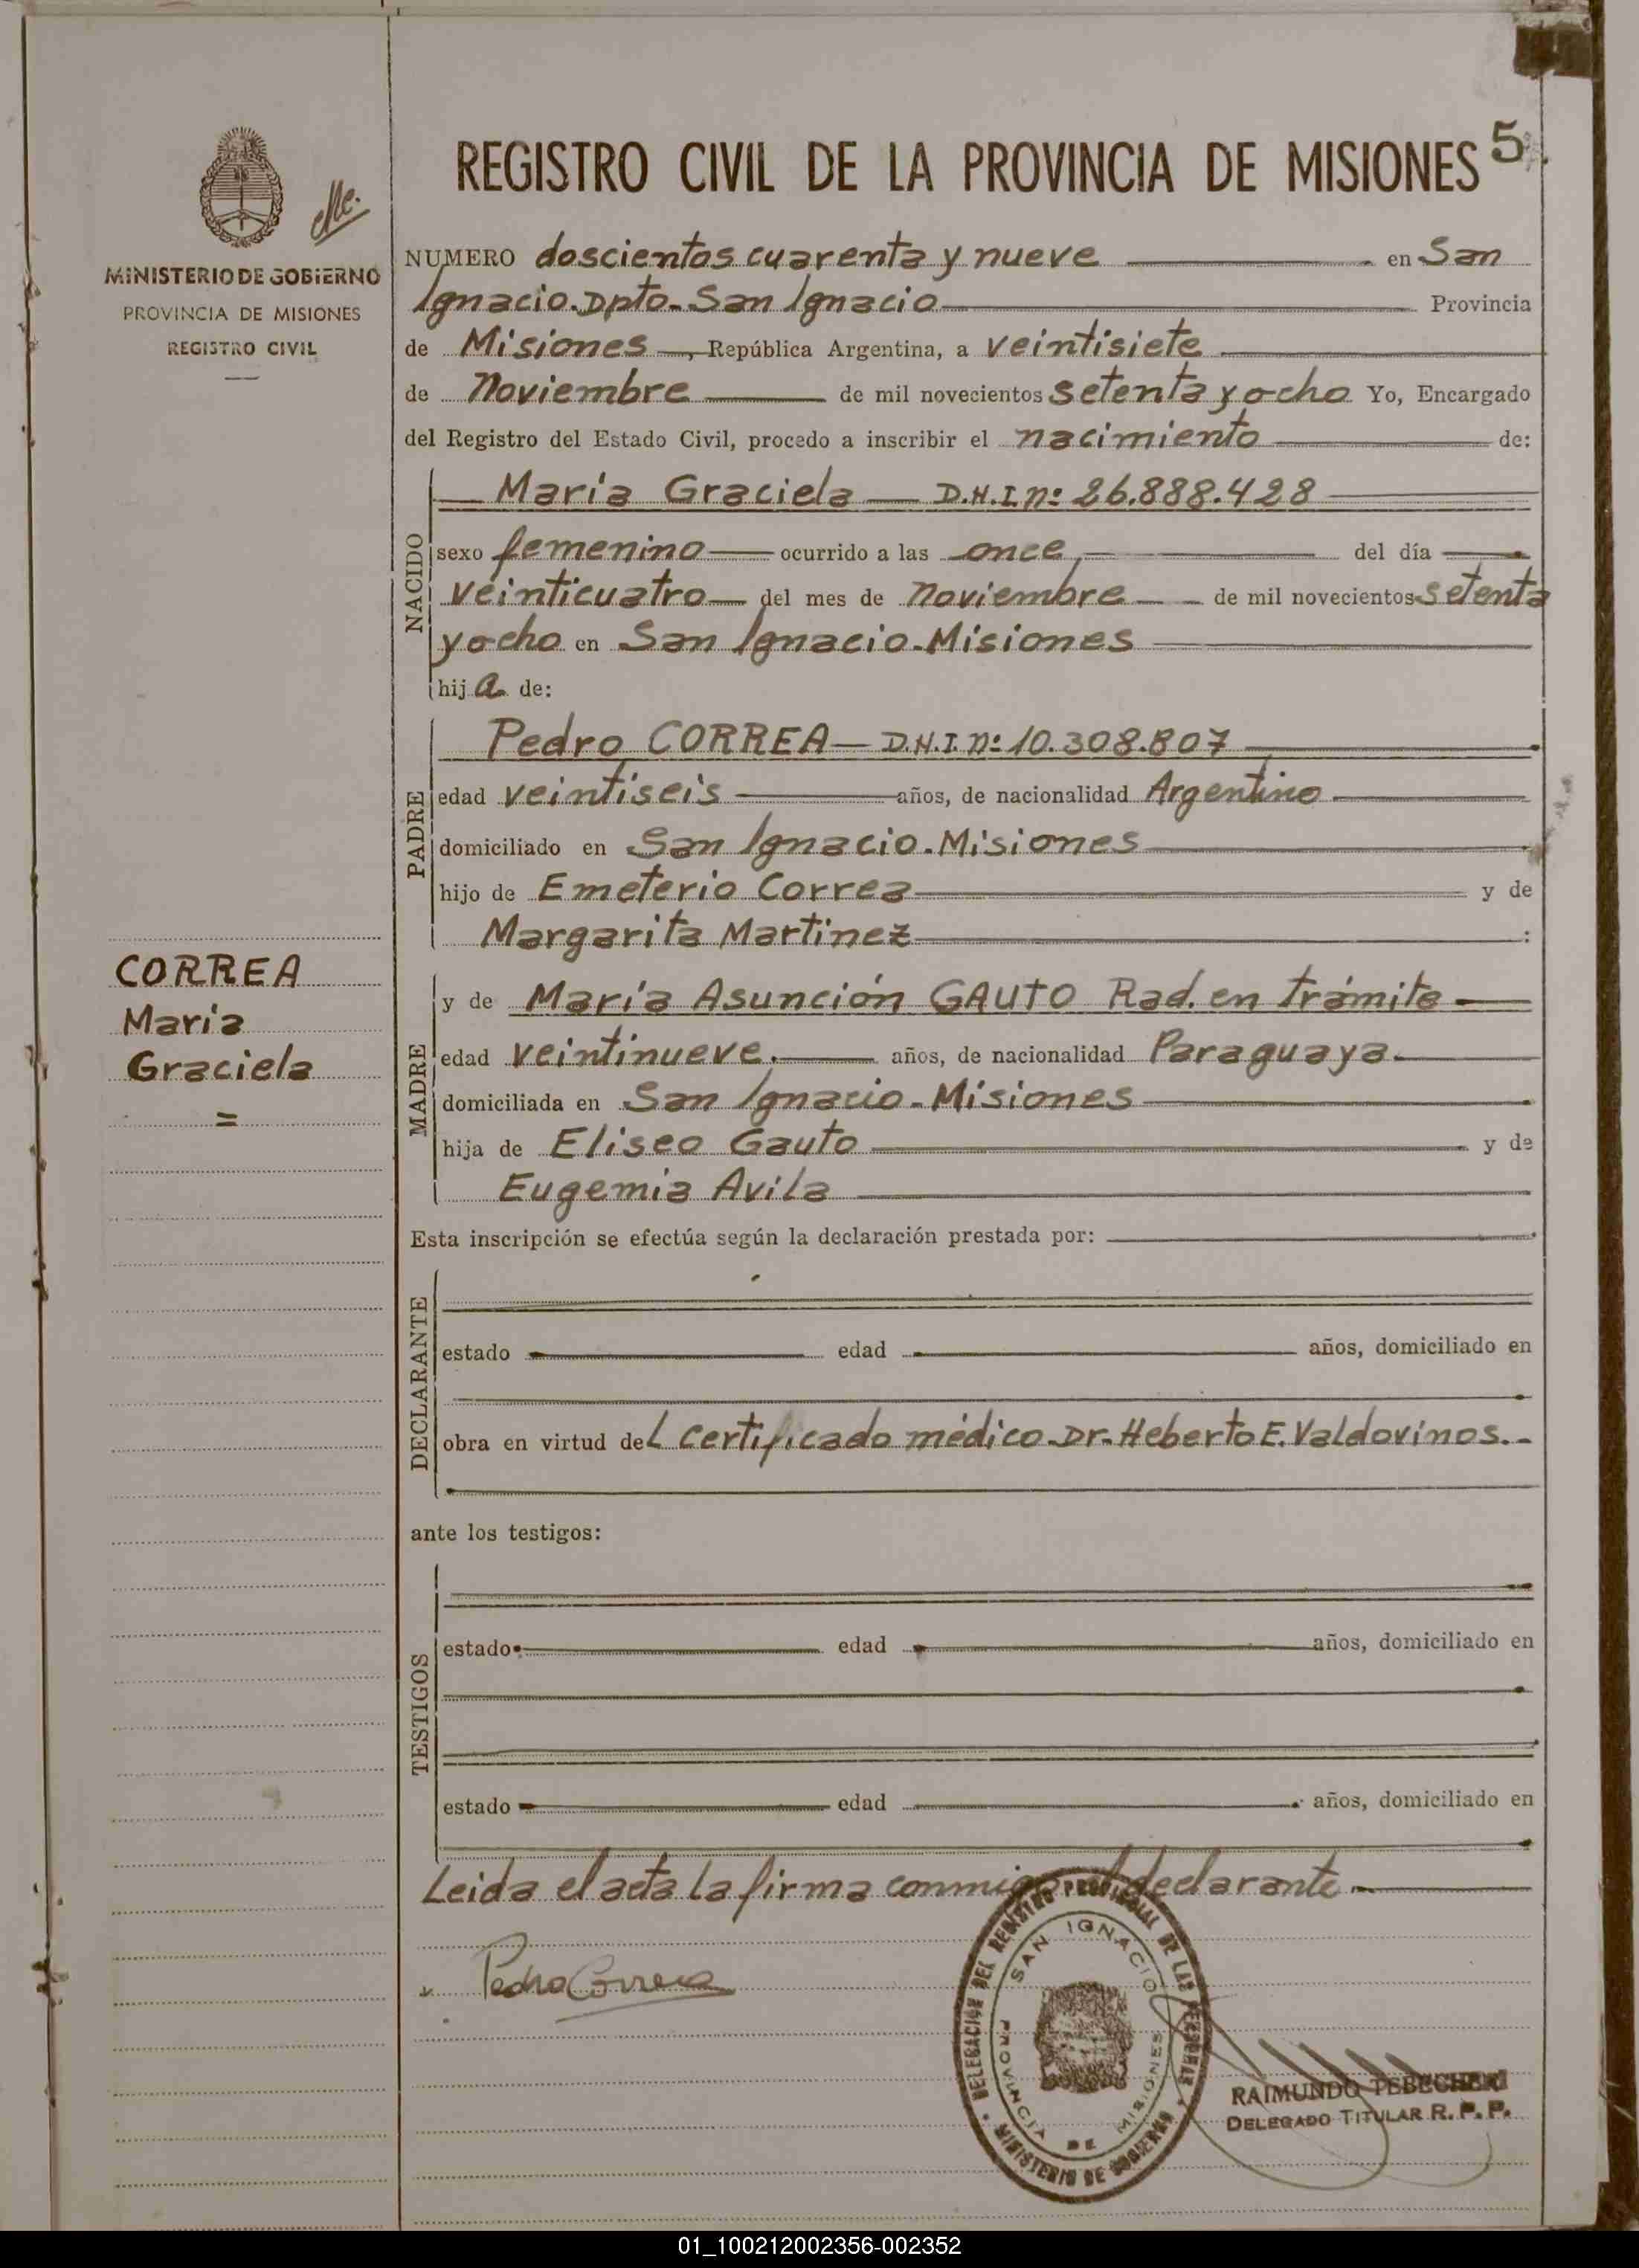 REGISTRO CIVIL DE LA PROVINCIA DE MISIONES 5
MINISTERIO DE GOBIERNO
PROVINCIA DE MISIONES
REGISTRO CIVIL
NUMERO doscientos cuarenta y nueve en San
Ignacio. Dpto. San Ignacio Provincia
de Misiones, República Argentina, a veintisiete
de Noviembre de mil novecientos setenta y ocho Yo, Encargado
del Registro del Estado Civil, procedo a inscribir el nacimiento de:
NACIDO
María Graciela — D.N.I nº 26.888.428
sexo femenino ocurrido a las once, del día
veinticuatro del mes de Noviembre de mil novecientos setenta
y ocho en San Ignacio. Misiones
hija de:
PADRE
Pedro CORREA — D.N.I. nº 10.308.807
edad veintiseis años, de nacionalidad Argentino
domiciliado en San Ignacio. Misiones
hijo de Emeterio Correa y de
Margarita Martinez :
CORREA
María
Graciela
=
MADRE
y de María Asunción GAUTO Rad. en trámite
edad veintinueve. años, de nacionalidad Paraguaya.
domiciliada en San Ignacio. Misiones
hija de Eliseo Gauto y de
Eugemia Avila
Esta inscripción se efectúa según la declaración prestada por:
DECLARANTE
estado edad años, domiciliado en
obra en virtud del certificado médico. Dr. Heberto E. Valdovinos.-
ante los testigos:
TESTIGOS
estado edad años, domiciliado en
estado edad años, domiciliado en
Leida el acta la firma conmigo el declarante.
Pedro Correa
DELEGACIÓN DEL REGISTRO PROVINCIAL DE LAS PERSONAS
SAN IGNACIO
PROVINCIA DE MISIONES
MINISTERIO DE GOBIERNO
RAIMUNDO
DELEGADO TITULAR R. P. P.
01_100212002356-002352